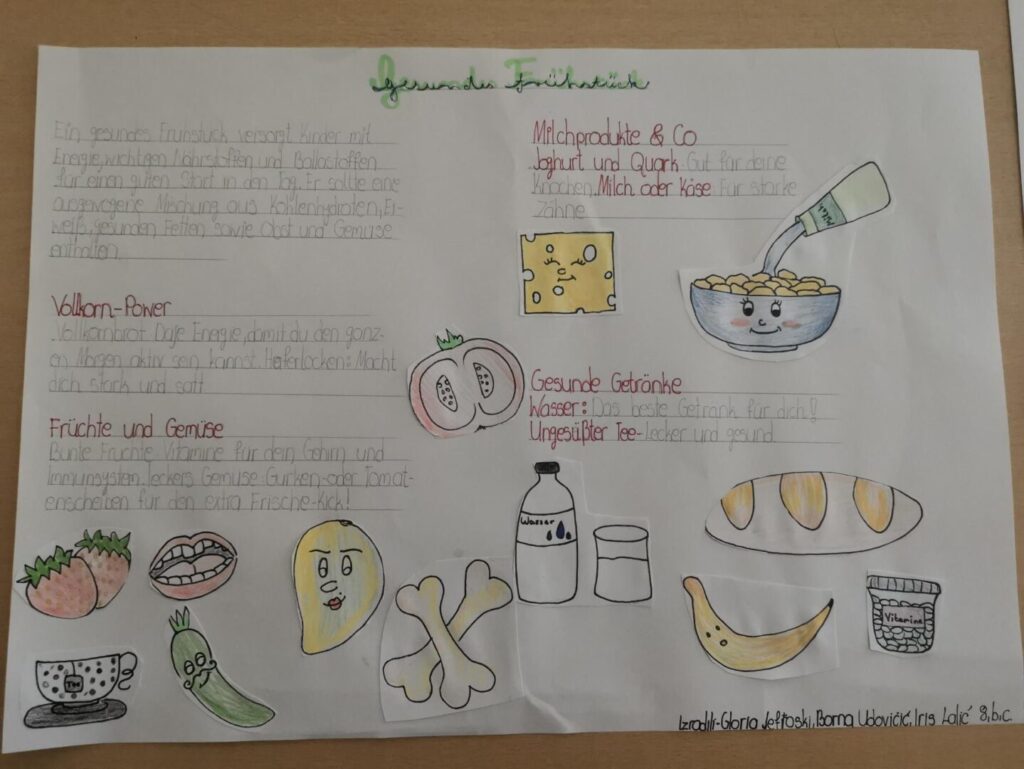 Gesundes Frühstück
Ein gesundes Frühstück versorgt Kinder mit
Energie, wichtigen Nährstoffen und Ballastoffen
für einen guten Start in den Tag. Er sollte eine
ausgewogene Mischung aus Kohlenhydraten, Ei-
weiß, gesunden Fetten sowie Obst und Gemüse
enthalten.
Vollkorn-Power
Vollkornbrot Dafe Energie, damit du den ganz-
en Morgen aktiv sein kannst. Haferlocken: Macht
dich stark und satt
Früchte und Gemüse
Bunte Früchte Vitamine für dein Gehirn und
Immunsystem leckers Gemüse: Gurken-oder Tomat-
enscheiben für den extra Frische-Kick!
Milchprodukte & Co
Joghurt und Quark: Gut für deine
Knochen. Milch oder Käse: Für starke
Zähne
Milk
Gesunde Getrönke
Wasser: Das beste Getränk für dich!
Ungesüßter Tee-Lecker und gesund.
Wasser
Vitamine
Tee
Izradili-Gloria Jeftoski, Borna Udovičić, Iris Lalić 8.b.c.